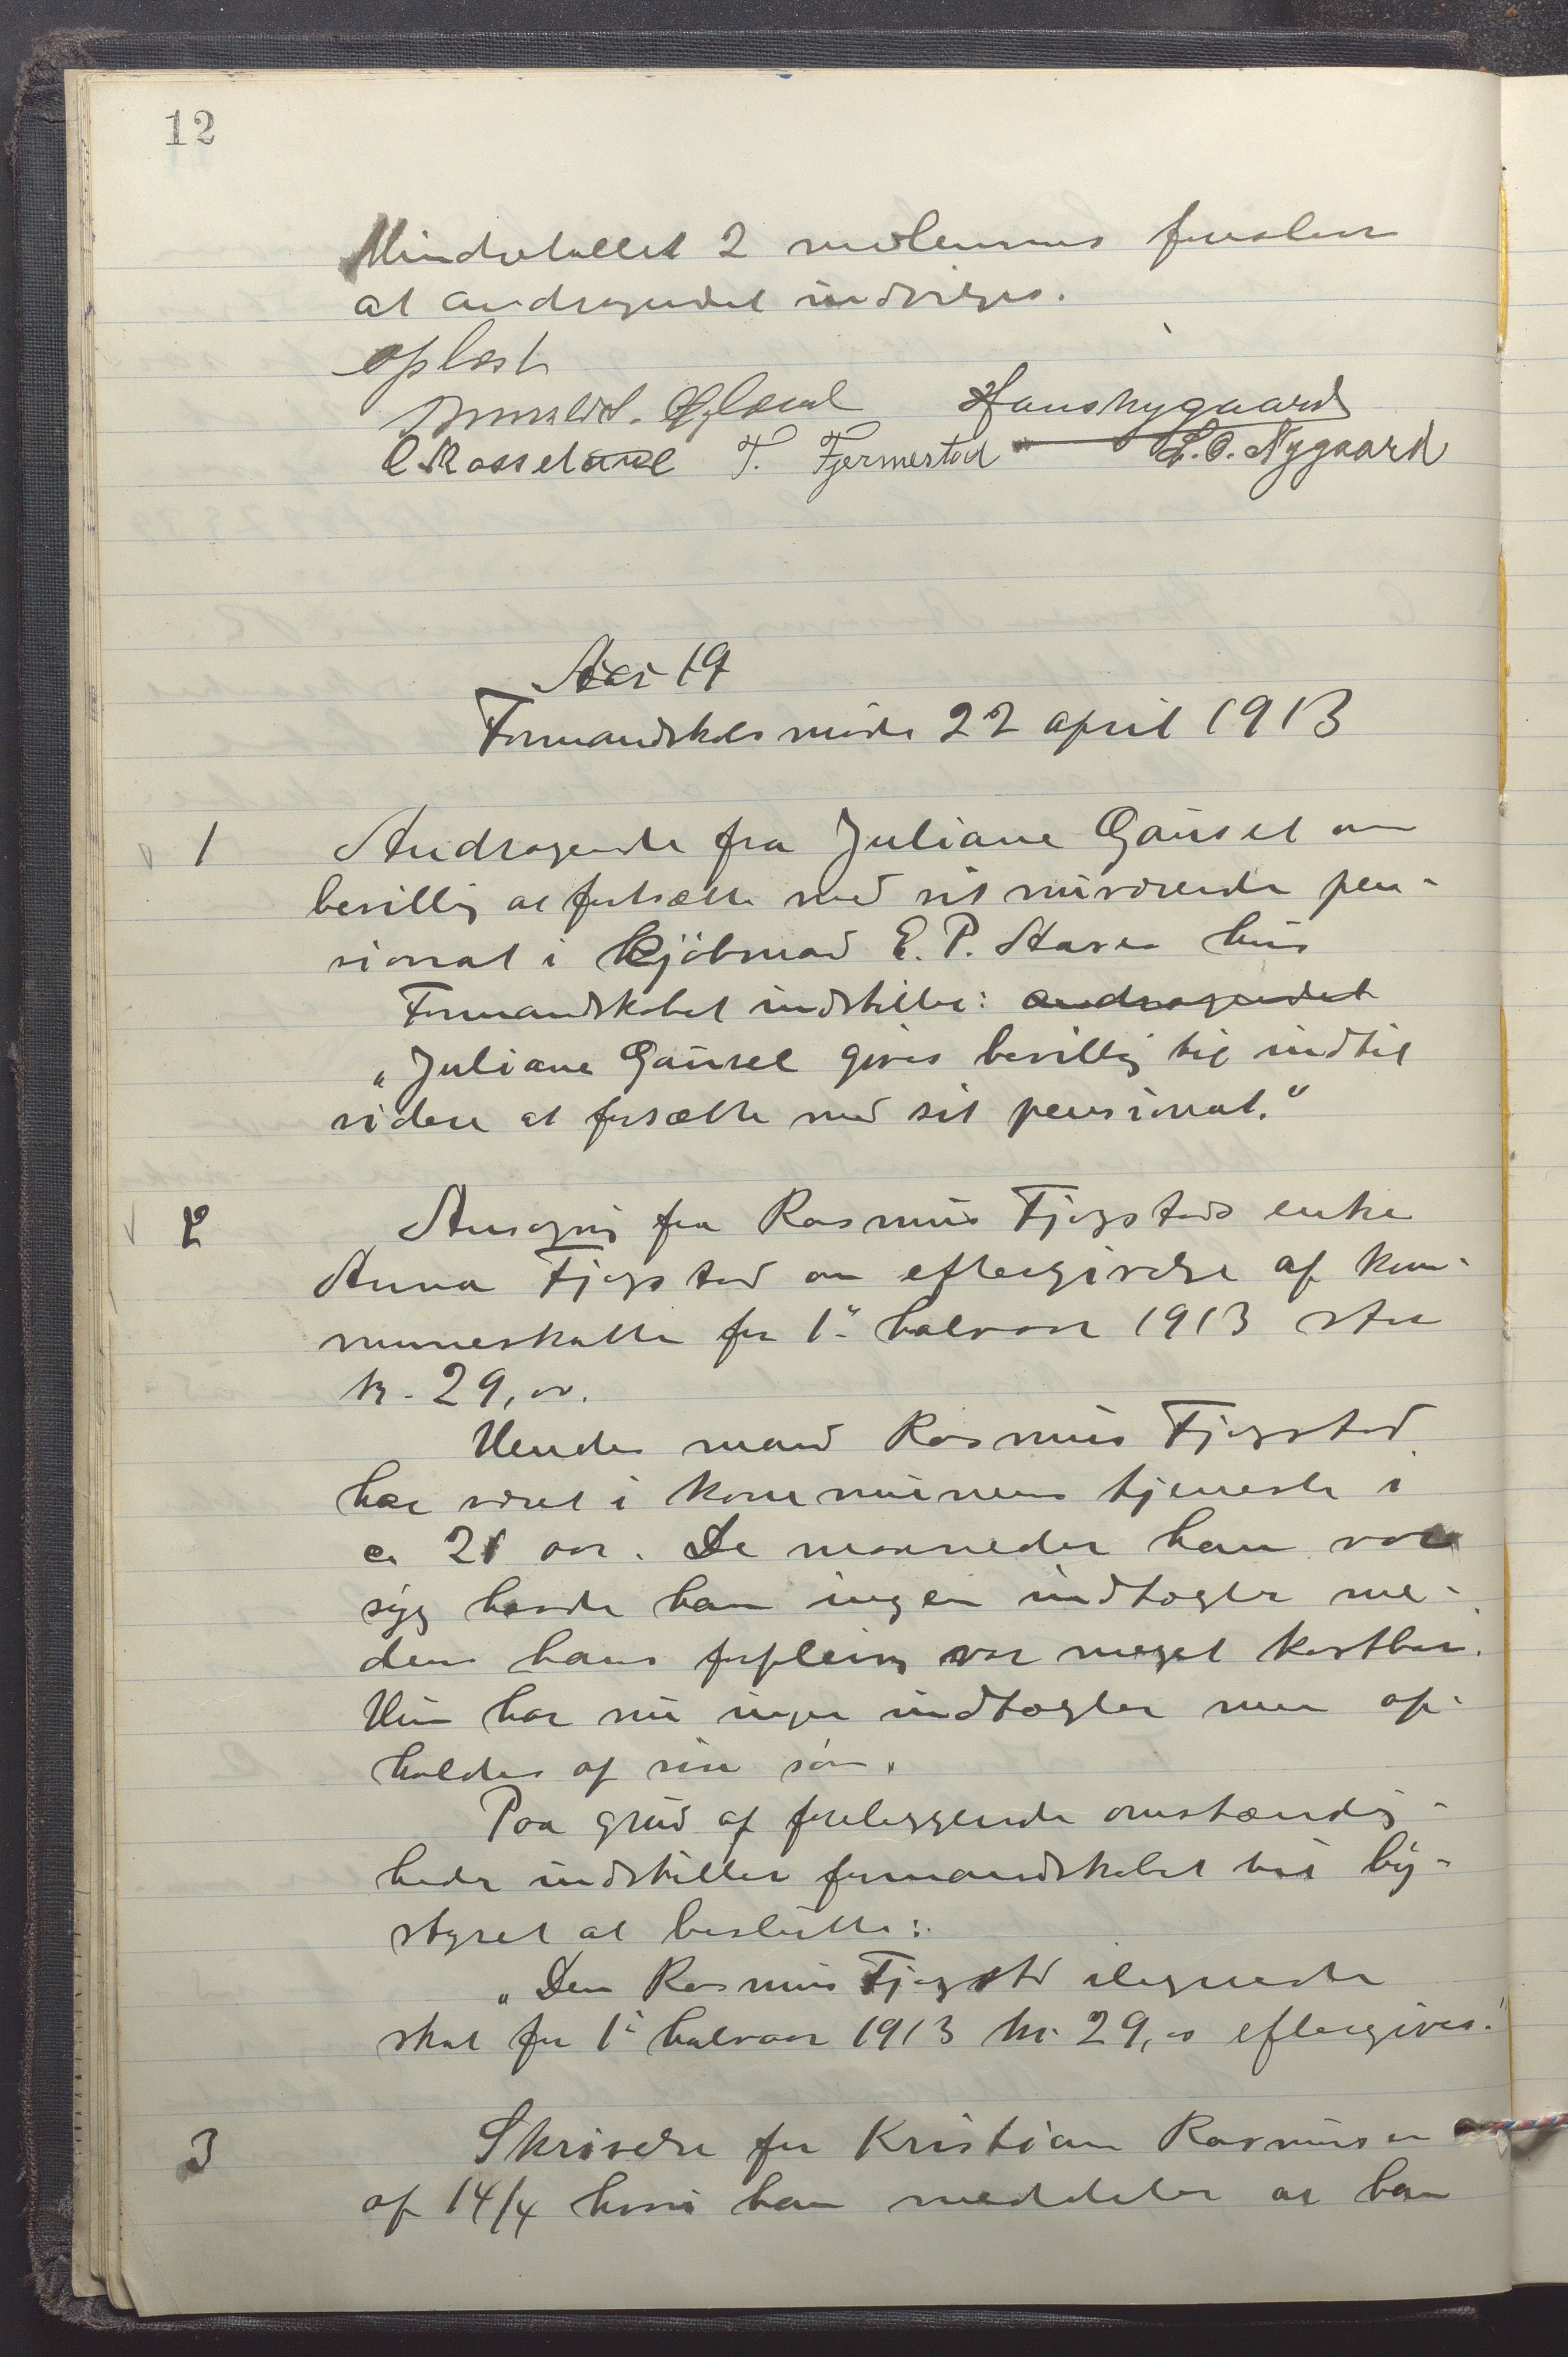 12
Mindretallet 2 medlemmer foreslaar
at andragendet indvilges.
oplæst
Hans Nygaard
C Rosseland T. Fjermestad L. O. Nygaard
Formandskabsmöde 22 april 1913
1 Andragende fra Juliane Gausel om
bevillig at fortsætte med sit nuværende pen-
sionat i kjöbmad E. P. Staves hus
Formandskabet indstiller: andragendet
„Juliane Gausel gives bevillig til indtil
videre at forsætte med sit pensionat."
2 Ansøgnig fra Rasmus Fjogstads enke
Anna Fjogstad om eftergivelse af kom-
muneskatte for 1ste halvaar 1913 stor
kr. 29,00.
Hendes mand Rasmus Fjogstad
har været i kommunens tjeneste i
ca 21 aar. De maaneder han var
syg havde han ingen indtægter me-
dens hans forpleinig var meget kostbar.
Hun har nu ingen indtægter men op-
holdes af sin sön.
Paa grund af foreliggende omstændig-
heder indstiller formandskabet til by-
styret at beslutte:
„Den Rasmus Fjogstad ilignede
skat for 1ste halvaar 1913 kr. 29,00 eftergives."
3 Skrivelse fra Kristian Rasmusen
af 14/4 hvori han meddeler at han